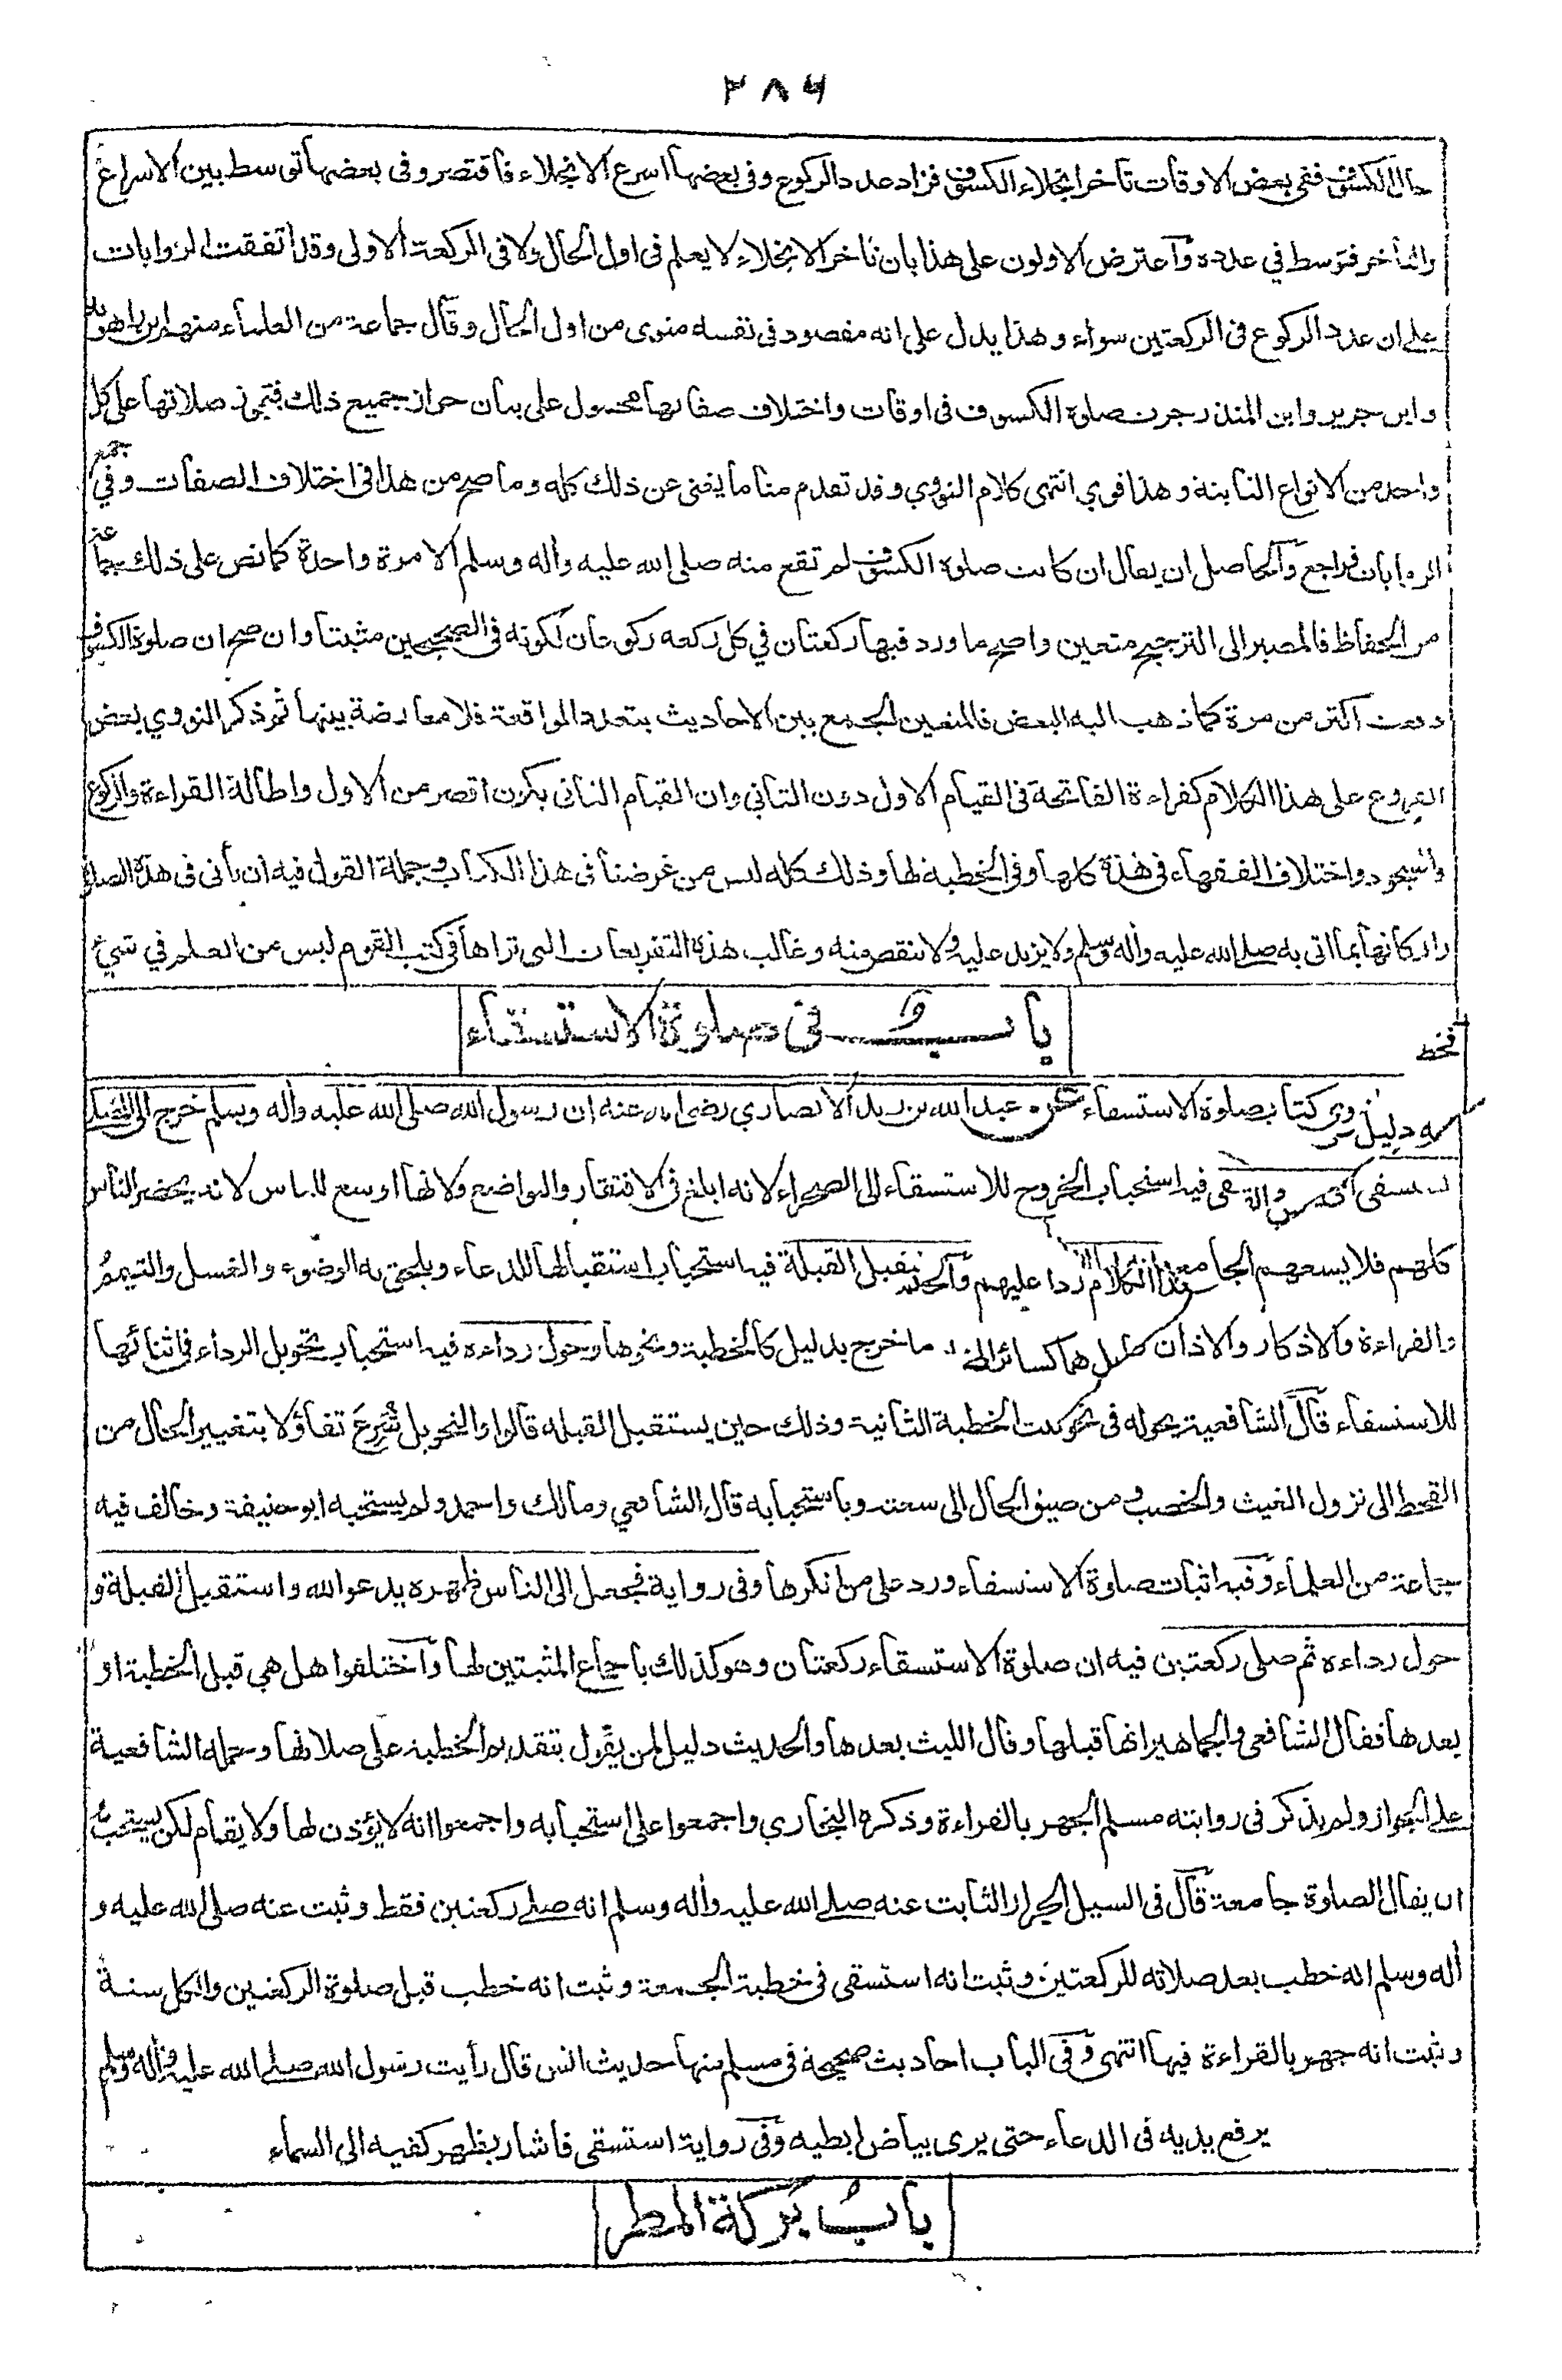 ٢٨٦
حال الكسوف ففي بعض الاوقات تأخر انجلاء الكسوف فزاد عدد الركوع وفي بعضها اسرع الانجلاء فاقتصر وفي بعضها توسط بين الاسراع
والتأخر فتوسط في عدده وآعترض الاولون على هذا بان تأخر الانجلاء لا يعلم في اول الحال ولا في الركعة الاولى وقد اتفقت الروايات
على ان عدد الركوع في الركعتين سواء وهذا يدل على انه مقصود في نفسه منوى من اول الحال وقال جماعة من العلماء منهم ابن راهويه
وابن جرير وابن المنذر جرت صلوة الكسوف في اوقات واختلاف صفاتها محمول على بيان جواز جميع ذلك فتجوز صلاتها على كل
واحد من الانواع الثابتة وهذا قوي انتهى كلام النووي وقد تقدم منا ما يغني عن ذلك كله وما صح من هذا في اختلاف الصفات وفي جمع
الروايات فراجع وآلحاصل ان يقال ان كانت صلوة الكسوف لم تقع منه صلى الله عليه وأله وسلم الا مرة واحدة كما نص على ذلك جماعة
من الحفاظ فالمصير الى الترجيح متعين واصح ما ورد فيها ركعتان في كل ركعه ركوعان لكونه في الصحيحين مثبتا وان صح ان صلوة الكسوف
وقعت اكثر من مرة كما ذهب اليه البعض فالمتعين الجمع بين الاحاديث بتعدد الواقعة فلا معارضة بينها ثم ذكر النووي بعض
الفروع على هذا الكلام كقراءة الفاتحة في القيام الاول دون الثاني وان القيام الثاني يكون اقصر من الاول واطالة القراءة والركوع
والسجود واختلاف الفقهاء في هذة كلها وفي الخطبة لها وذلك كله ليس من غرضنا في هذا الكتاب وجملة القول فيه ان يأتي في هذة الصلوة
واركانها بما اتى به صلى الله عليه وأله وسلم ولا يزيد عليه ولا ينقص منه وغالب هذة التفريعات التي تراها في كتب القوم ليس من العلم في شيء
باب في صلوة الاستسقاء
وفي كتاب صلوة الاستسقاء عن عبد الله بن زيد الانصاري رضي الله عنه ان رسول الله صلى الله عليه وأله وسلم خرج الى المصلى
يستسقي فيه استحباب الخروج للاستسقاء الى الصحراء لانه ابلغ في الافتقار والتواضع ولانها اوسع للناس لانه يحضر الناس
كلهم فلا يسعهم الجامع القبلة فيه استحباب استقبالها للدعاء ويلحق به الوضوء والغسل والتيمم
والقراءة والاذكار والاذان ما خرج بدليل كالخطبة ونحوها وحول رداءه فيه استحباب تحويل الرداء في اثنائها
للاستسقاء قآل الشافعية يحوله في نحو ثلث الخطبة الثانية وذلك حين يستقبل القبله قالوا والتحويل شُرِعَ تفاؤلا بتغيير الحال من
القحط الى نزول الغيث والخصب ومن ضيق الحال الى سعته وباستحبابه قال الشافعي ومالك واحمد ولم يستحبه ابو حنيفة وخالف فيه
جماعة من العلماء وفيه اثبات صلوة الاستسقاء ورد على من انكرها وفي رواية فجعل الى الناس ظهره يدعو الله واستقبل القبلة و
حول رداءه ثم صلى ركعتين فيه ان صلوة الاستسقاء ركعتان وهو كذلك باجماع المثبتين لها وآختلفوا هل هي قبل الخطبة او
بعدها فقال الشافعي والجماهير انها قبلها وقال الليث بعدها والحديث دليل لمن يقول بتقديم الخطبة على صلاتها وحمله الشافعية
على الجواز ولم يذكر في روايته مسلم الجهر بالقراءة وذكرة البخاري واجمعوا على استحبابه واجمعوا انه لا يؤذن لها ولا يقام لكن يستحب
ان يقال الصلوة جامعة قآل في السيل الجرار الثابت عنه صلى الله عليه وأله وسلم انه صلى ركعتين فقط وثبت عنه صلى الله عليه و
أله وسلم انه خطب بعد صلاته للركعتين وثبت انه استسقى في خطبة الجمعة وثبت انه خطب قبل صلوة الركعتين والكل سنة
وثبت انه جهر بالقراءة فيها انتهى وفي الباب احاديث صحيحة في مسلم منها حديث انس قال رأيت رسول الله صلى الله عليه وأله وسلم
يرفع يديه في الدعاء حتى يرى بياض ابطيه وفي رواية استسقى فاشار بظهر كفيه الى السماء
باب بركة المطر